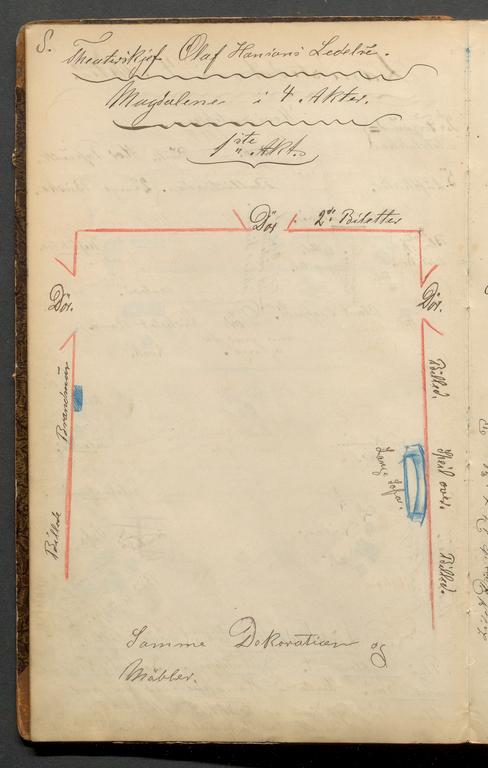 8.
Theaterskjef Olaf Hansons Ledelse.
Magdalene i 4 Akter.
1ste Akt.
Dör
2de Billetter
Dör.
Dör.
Billed.
Billede
Speil over.
Lange Sofa.
Billed.
Samme Dekoration og
Möbler.